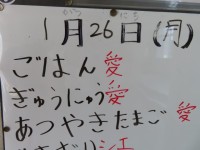 1月26日(月)
ごはん 愛
ぎゅうにゅう 愛
あつやきたまご 愛